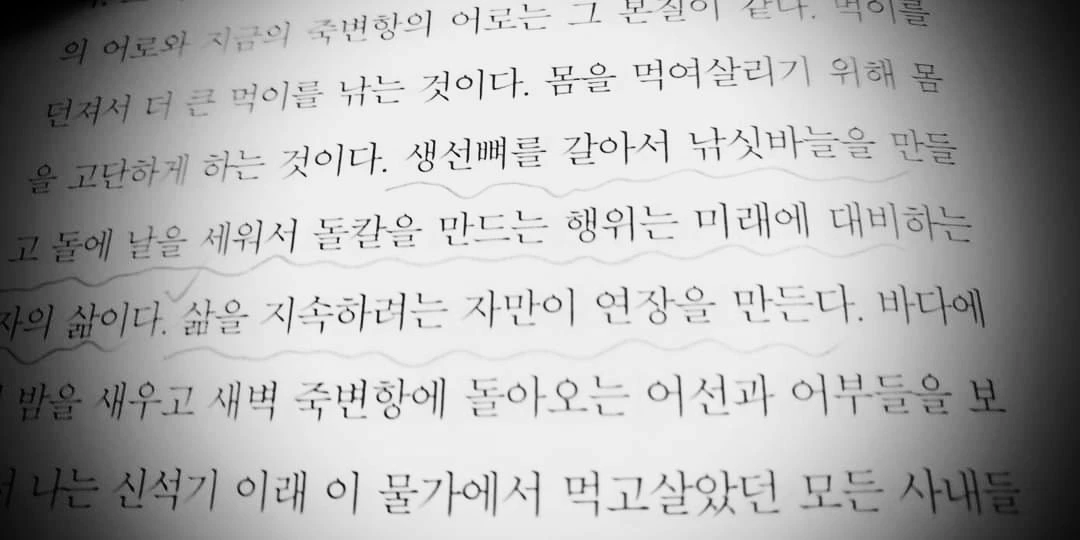 의 어로와 지금의 죽변항의 어로는 그 본질이 같다. 먹이를
던져서 더 큰 먹이를 낚는 것이다. 몸을 먹여살리기 위해 몸
을 고단하게 하는 것이다. 생선뼈를 갈아서 낚싯바늘을 만들
고 돌에 날을 세워서 돌칼을 만드는 행위는 미래에 대비하는
자의 삶이다. 삶을 지속하려는 자만이 연장을 만든다. 바다에
밤을 새우고 새벽 죽변항에 돌아오는 어선과 어부들을 보
나는 신석기 이래 이 물가에서 먹고살았던 모든 사내들